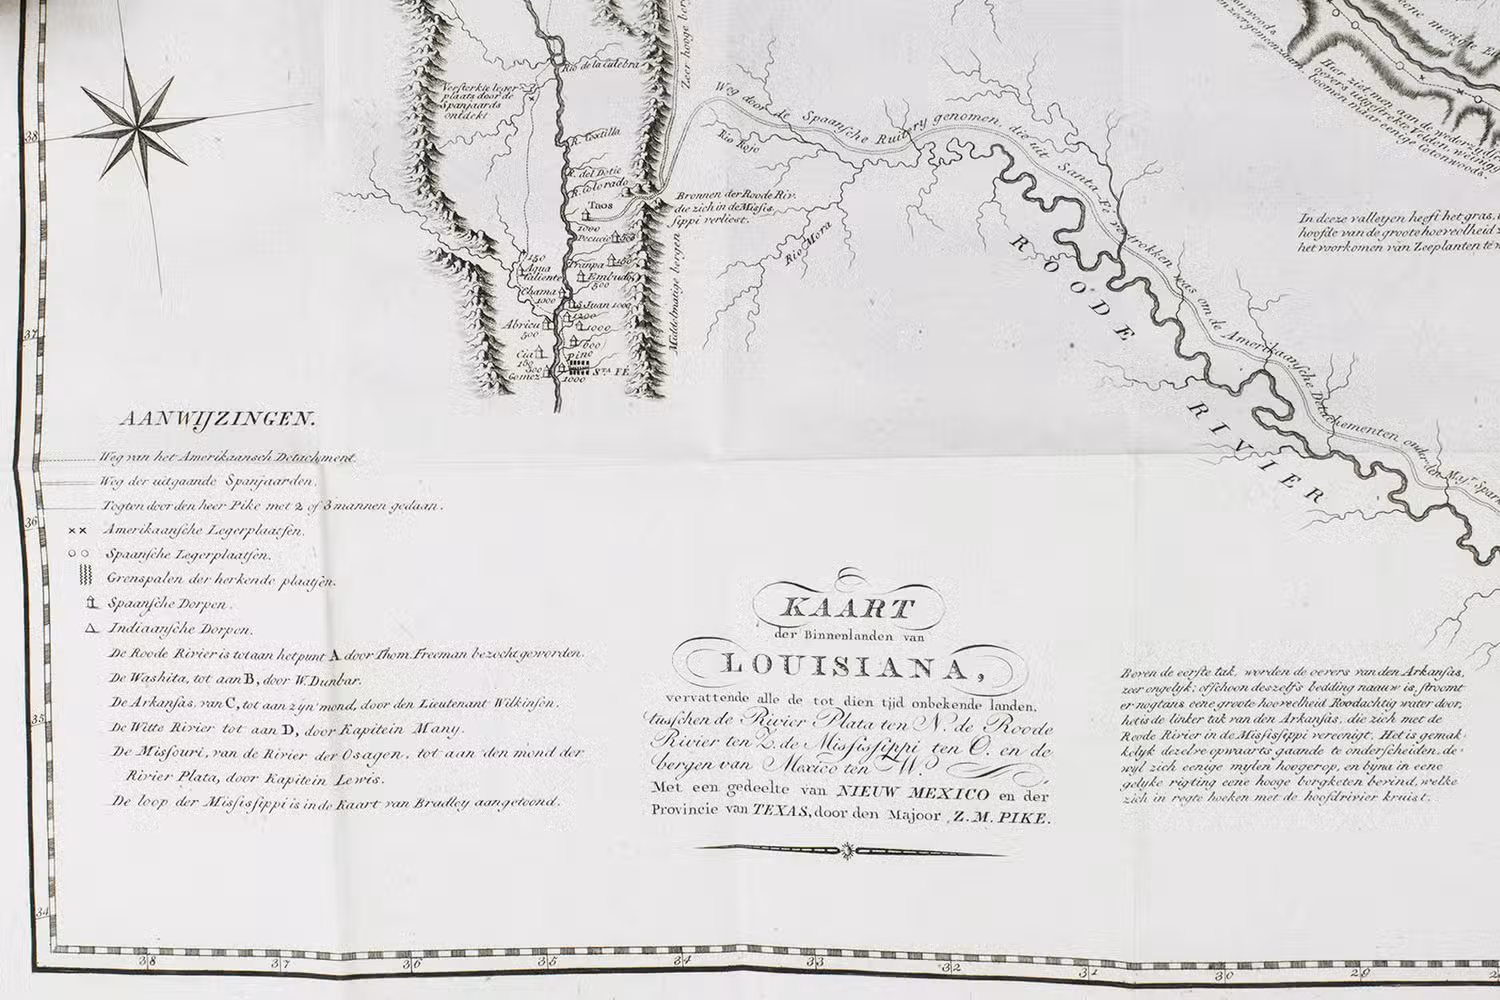 38
37
36
35
34
38
37
36
35
34
33
32
31
30
29
Rio de la Culebra
Versterkte leger
plaats door de
Spanjaards
ontdekt
R. del Dotic
R. Colorado
Taos
1000
150
Agua
Caliente
Chama
1000
Abricu
500
Embudo
500
S. Juan 1000
1200
1000
600
pino
STA FÉ
1000
Zeer hooge
Middelmatige bergen
Bronnen der Roode Riv.
die zich in de Missis
sippi verliest.
Rio Rojo
Rio Mora
Weg door de Spaansche Ruitery genomen, die uit Santa Fé vertrokken was om de Amerikaansche Detachementen onder den Majr. Spark
ROODE RIVIER
Hier ziet men aan de wederzyde
In deeze valleyen heeft het gras,
hoofde van de groote hoeveelheid
het voorkomen van Zeeplanten te
AANWIJZINGEN.
Weg van het Amerikaansch Detachment.
Weg der uitgaande Spanjaarden.
Togten door den heer Pike met 2 of 3 mannen gedaan.
Amerikaansche Legerplaatsen.
Spaansche Legerplaatsen.
Grenspalen der herkende plaatsen.
Spaansche Dorpen.
Indiaansche Dorpen.
De Roode Rivier is tot aan het punt A door Thom. Freeman bezocht geworden.
De Washita, tot aan B, door W. Dunbar.
De Arkansas. van C, tot aan zijn mond, door den Lieutenant Wilkinson.
De Witte Rivier tot aan D, door Kapitein Many.
De Missouri, van de Rivier der Osagen, tot aan den mond der
Rivier Plata, door Kapitein Lewis.
De loop der Missisippi is in de Kaart van Bradley aangetoond.
KAART
der Binnenlanden van
LOUISIANA,
vervattende alle de tot dien tijd onbekende landen,
tusschen de Rivier Plata ten N. de Roode
Rivier ten Z. de Missisippi ten O. en de
bergen van Mexico ten W.
Met een gedeelte van NIEUW MEXICO en der
Provincie van TEXAS, door den Majoor Z. M. PIKE.
Boven de eerste tak, worden de oevers van den Arkansas,
zeer ongelyk; ofschoon deszelfs bedding naauw is, stroomt
er nogtans eene groote hoeveelheid Roodachtig water door,
het is de linker tak van den Arkansas, die zich met de
Roode Rivier in de Missisippi vereenigt. Het is gemak-
kelyk dezelve opwaarts gaande te onderscheiden, de-
wyl zich eenige mylen hoogerop, en byna in eene
gelyke rigting eene hooge bergketen bevind, welke
zich in regte hoeken met de hoofdrivier kruist.